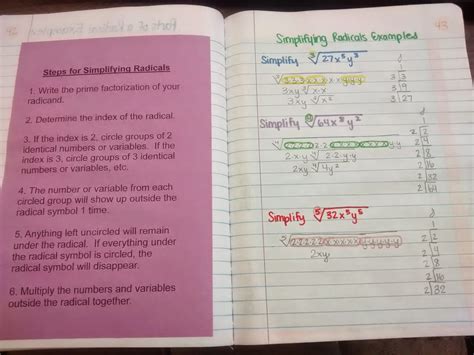 Steps for Simplifying Radicals
1. Write the prime factorization of your
radicand.
2. Determine the index of the radical.
3. If the index is 2, circle groups of 2
identical numbers or variables. If the
index is 3, circle groups of 3 identical
numbers or variables, etc.
4. The number or variable from each
circled group will show up outside the
radical symbol 1 time.
5. Anything left uncircled will remain
under the radical. If everything under
the radical symbol is circled, the
radical symbol will disappear.
6. Multiply the numbers and variables
outside the radical together.
43
Simplifying Radicals Examples
Simplify ∛27x⁵y³
3xy ∛x·x
3xy ∛x²
1
3|3
3|9
3|27
Simplify ∜64x⁸y²
2·x·x ∜2·2·y·y
1
2|2
2|4
2|8
2|16
2|32
2|64
Simplify ⁵√32x⁵y⁵
2xy
1
2|2
2|4
2|8
2|16
2|32